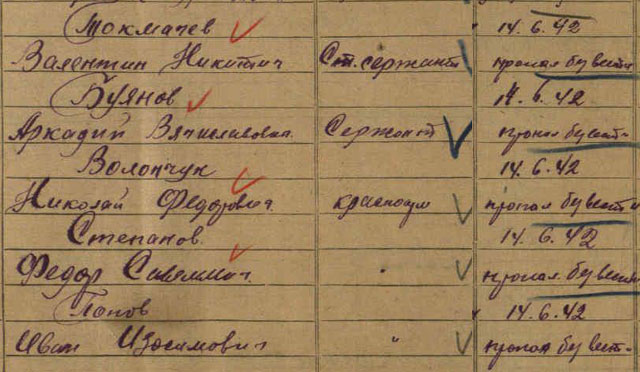 Токмачев 14.6.42
Валентин Никитич Ст. сержант пропал без вести
Буянов 14.6.42
Аркадий Вячиславович Сержант пропал без вести
Волончук 14.6.42
Николай Федорович красноарм пропал без вести
Степанов 14.6.42
Федор Савельич " пропал без вести
Попов 14.6.42
Иван Изосимович " пропал без вест